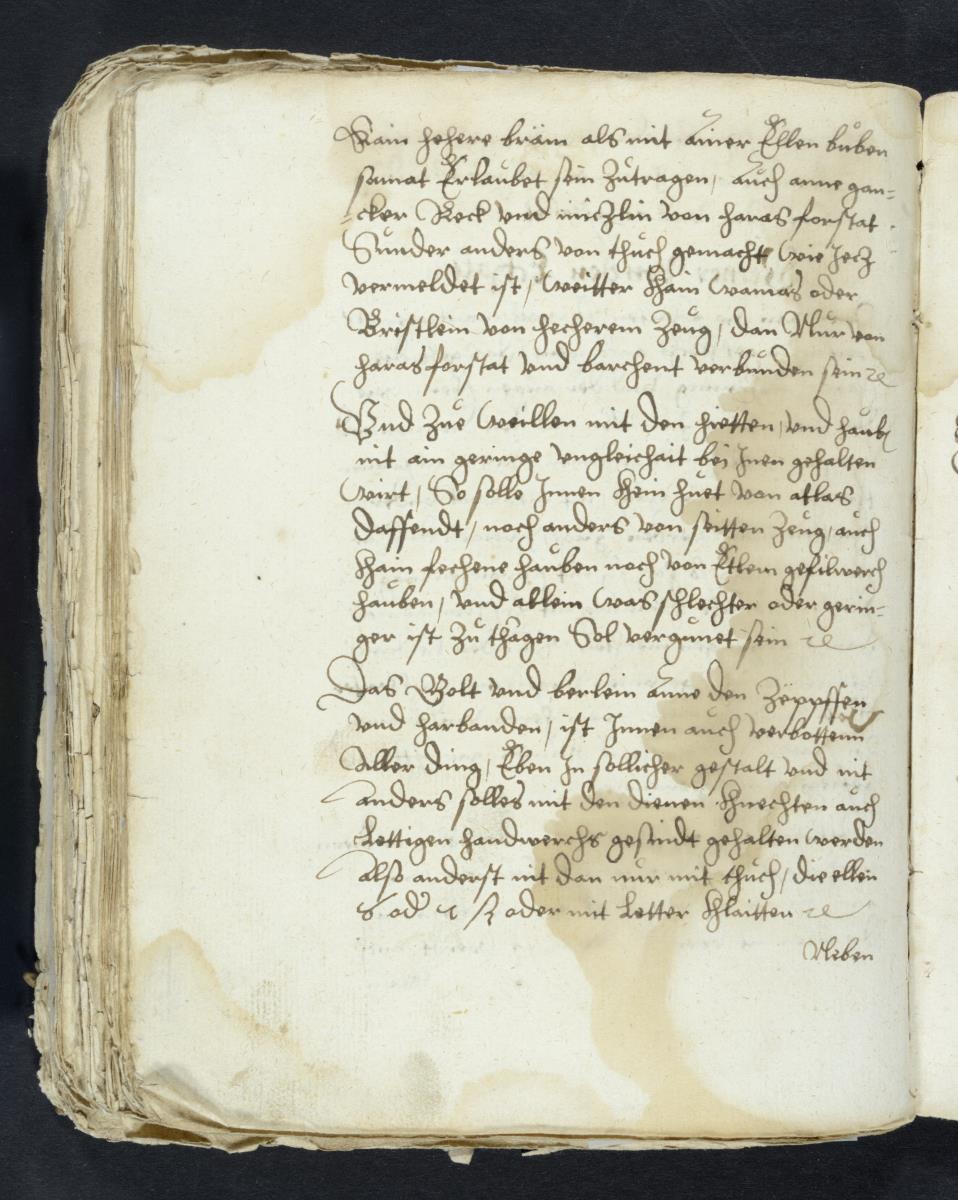 Kain hehere bräm als mit Ainer Ellen buben
samat Erlaubet sein zutragen, Auch anne gan-
cker Reck vnd miczlin von haras forstat
Sunder anders von thuch gemacht wie Jecz
vermeldet ist, weitter Khain wames oder
Bristlein von hecherem Zeug, dan Nur von
haras forstat vnd barchent verbunden sein ꝛc
Vnd Zue weillen mit den hietten, vnd haub
nit ain geringe vngleichait bei Inen gehalten
wirt, So solle Innen Khein huet von atlas
daffendt, noch anders von seitten Zeug, auch
Kham fechene hauben noch von Etlem gefilwerch
hauben, vnd allein was schlechter oder gerin-
ger ist Zu thragen Sol vergunet sein ꝛc
Das Golt vnd berlein Anne den Zëppffen
vnd harbanden, ist Innen auch verbottenn
Aller ding, Eben In sollicher gestalt vnd nit
anders solles mit den dienen Knechten auch
Lettigen handwerchs gesindt gehalten werden
also anderst nit dan nur mit thuch, die ellen
6 od 7 ß oder mit Letter Khlaitten ꝛc
Neben